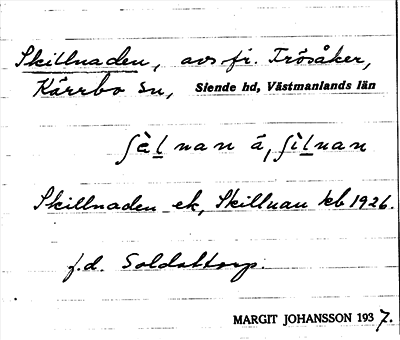 Skillnaden, avs. fr. Frösåker,
Kärrbo sn, Siende hd, Västmanlands län
ʃèl nan å, ʃìlnan
Skillnaden ek, Skillnan kb 1926.
f.d. Soldattorp.
MARGIT JOHANSSON 1937.